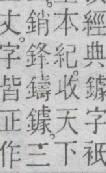 經典鐻字祇
本紀收天下
銷鋒鑄鐻三
丈字皆正作